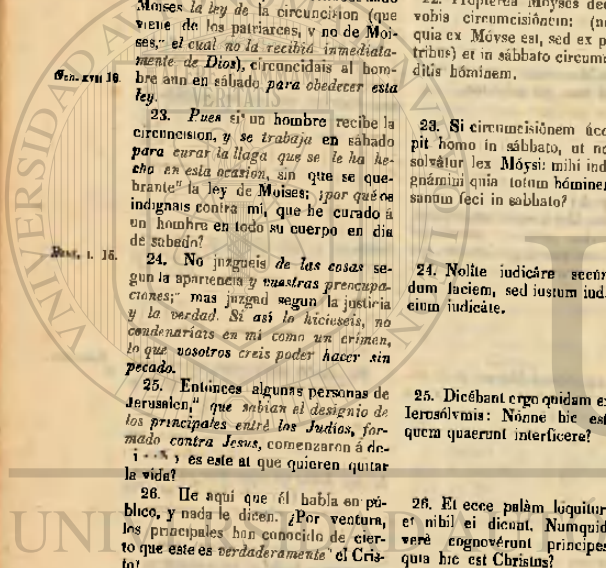 Moises la ley de la circuncision (que
viene de los patriarcas, y no de Moi-
ses," el cual no la recibió inmediata-
mente de Dios), circuncidais al hom-
Gen. XVII 10.
bre aun en sábado para obedecer esta
ley.
23. Pues si un hombre recibe la
circuncision, y se trabaja en sábado
para curar la llaga que se le ha he-
cho en esta ocasion, sin que se que-
brante" la ley de Moises; ¿por qué os
indignais contra mí, que he curado á
un hombre en todo su cuerpo en dia
de sabado?
I. 16.
24. No juzgueis de las cosas se-
gun la apariencia y vuestras preocupa-
ciones;" mas juzgad segun la justicia
y la verdad. Si así lo hicieseis, no
condenariais en mí como un crimen,
lo que vosotros creis poder hacer sin
pecado.
25. Entónces algunas personas de
Jerusalen," que sabian el designio de
los principales entre los Judíos, for-
mado contra Jesus, comenzaron á de-
es este al que quieren quitar
la vida?
26. He aquí que él habla en pú-
blico, y nada le dicen. ¿Por ventura,
los principales han conocido de cier-
to que este es verdaderamente el Cris-
to?
vobis circumcisiónem: (no
quia ex Móyse est, sed ex p
tribus) et in sábbato circumc
ditis hóminem.
23. Si circumcisiónem acc
pit homo in sábbato, ut no
solvátur lex Móysi: mihi ind
gnámini quia totum hóminem
sanum feci in sabbato?
24. Nolíte iudicáre secún
dum faciem, sed iustum iud
cium iudicáte.
25. Dicébant ergo quidam ex
Ierosólymis: Nónne hic est
quem quaerunt interfícere?
26. Et ecce palàm loquitur
et nihil ei dicunt. Numquid
verè cognovérunt príncipes
quia hic est Christus?
UNIVERSIDAD
VERITATIS
UNI